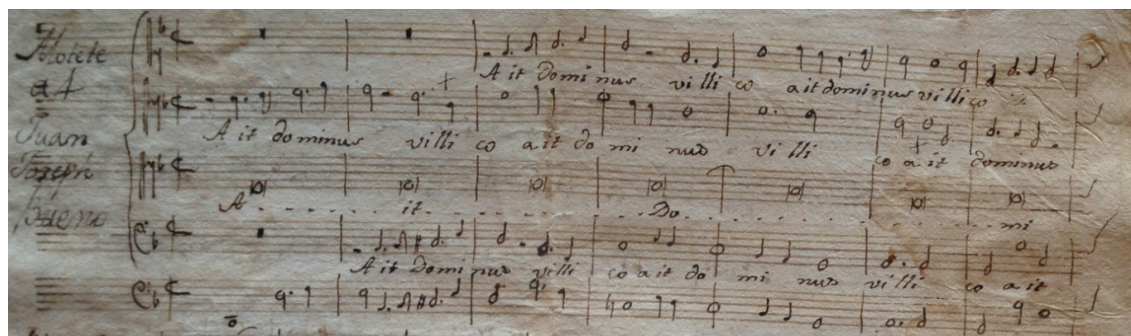 Motete
a 4
Juan
Joseph
Bueno
A it Domi nus vi lli co a it dominus villi co
A it do minus villi co a it do mi nus vi lli co a it dominus
A it Do mi
A it Domi nus villi co a it do mi nus villi co a it